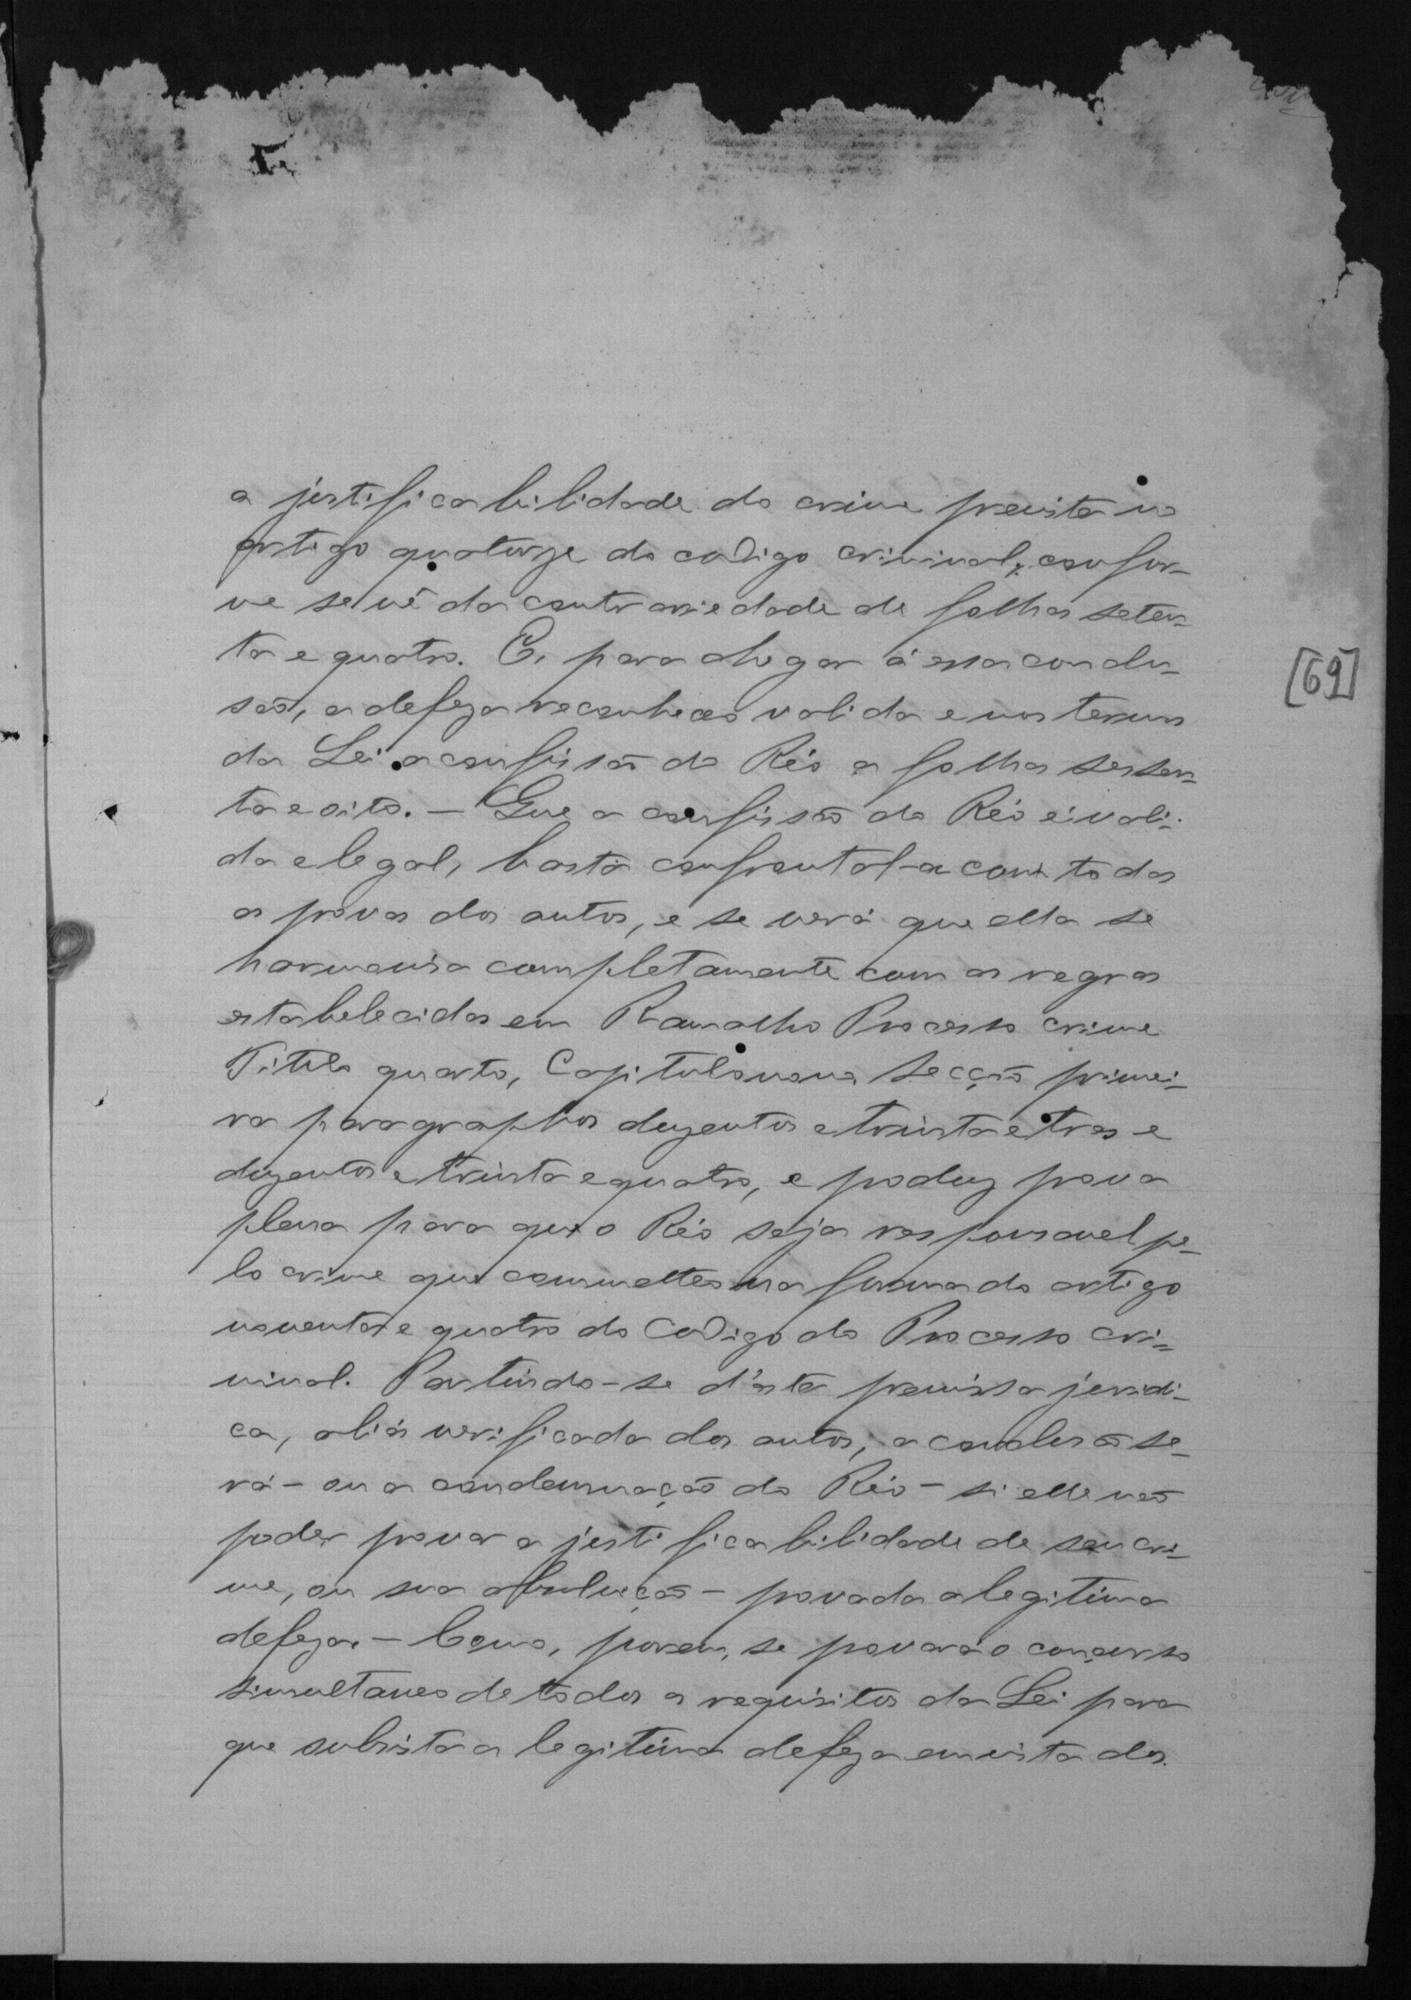 a justificabilidade do crime prevista no
artigo quatorze do codigo criminal, confor-
me se vê da contrariedade de folhas seten-
ta e quatro. E, para chegar á essa conclu-
são, a defeza reconheceo valida e nos termos
da Lei a confissão do Réo a folhas sessen-
ta e oito. — Que a confissão do Réo é vali-
da e legal, basta confrontal-a com todas
as provas dos autos, e se verá que ella se
harmonisa completamente com as regras
estabelecidas em Ramalho Processo crime
Titulo quarto, Capitulo nono secção primei-
ra paragraphos duzentos e trinta e tres e
duzentos e trinta e quatro, e produz prova
plena para que o Réo seja responsavel pe-
lo crime que commetteo na forma do artigo
noventa e quatro do Codigo do Processo cri-
minal. Partindo-se d'esta premissa juridi-
ca, aliás verificada dos autos, a conclusão se-
rá — ou a condemnação do Réo — si elle não
poder provar a justificabilidade de seu cri-
me, ou sua absolvição — provada a legitima
defeza. — Como, porem, se provará o concurso
simultaneo de todos os requisitos da Lei para
que subsista a legitima defeza em vista dos
[69]